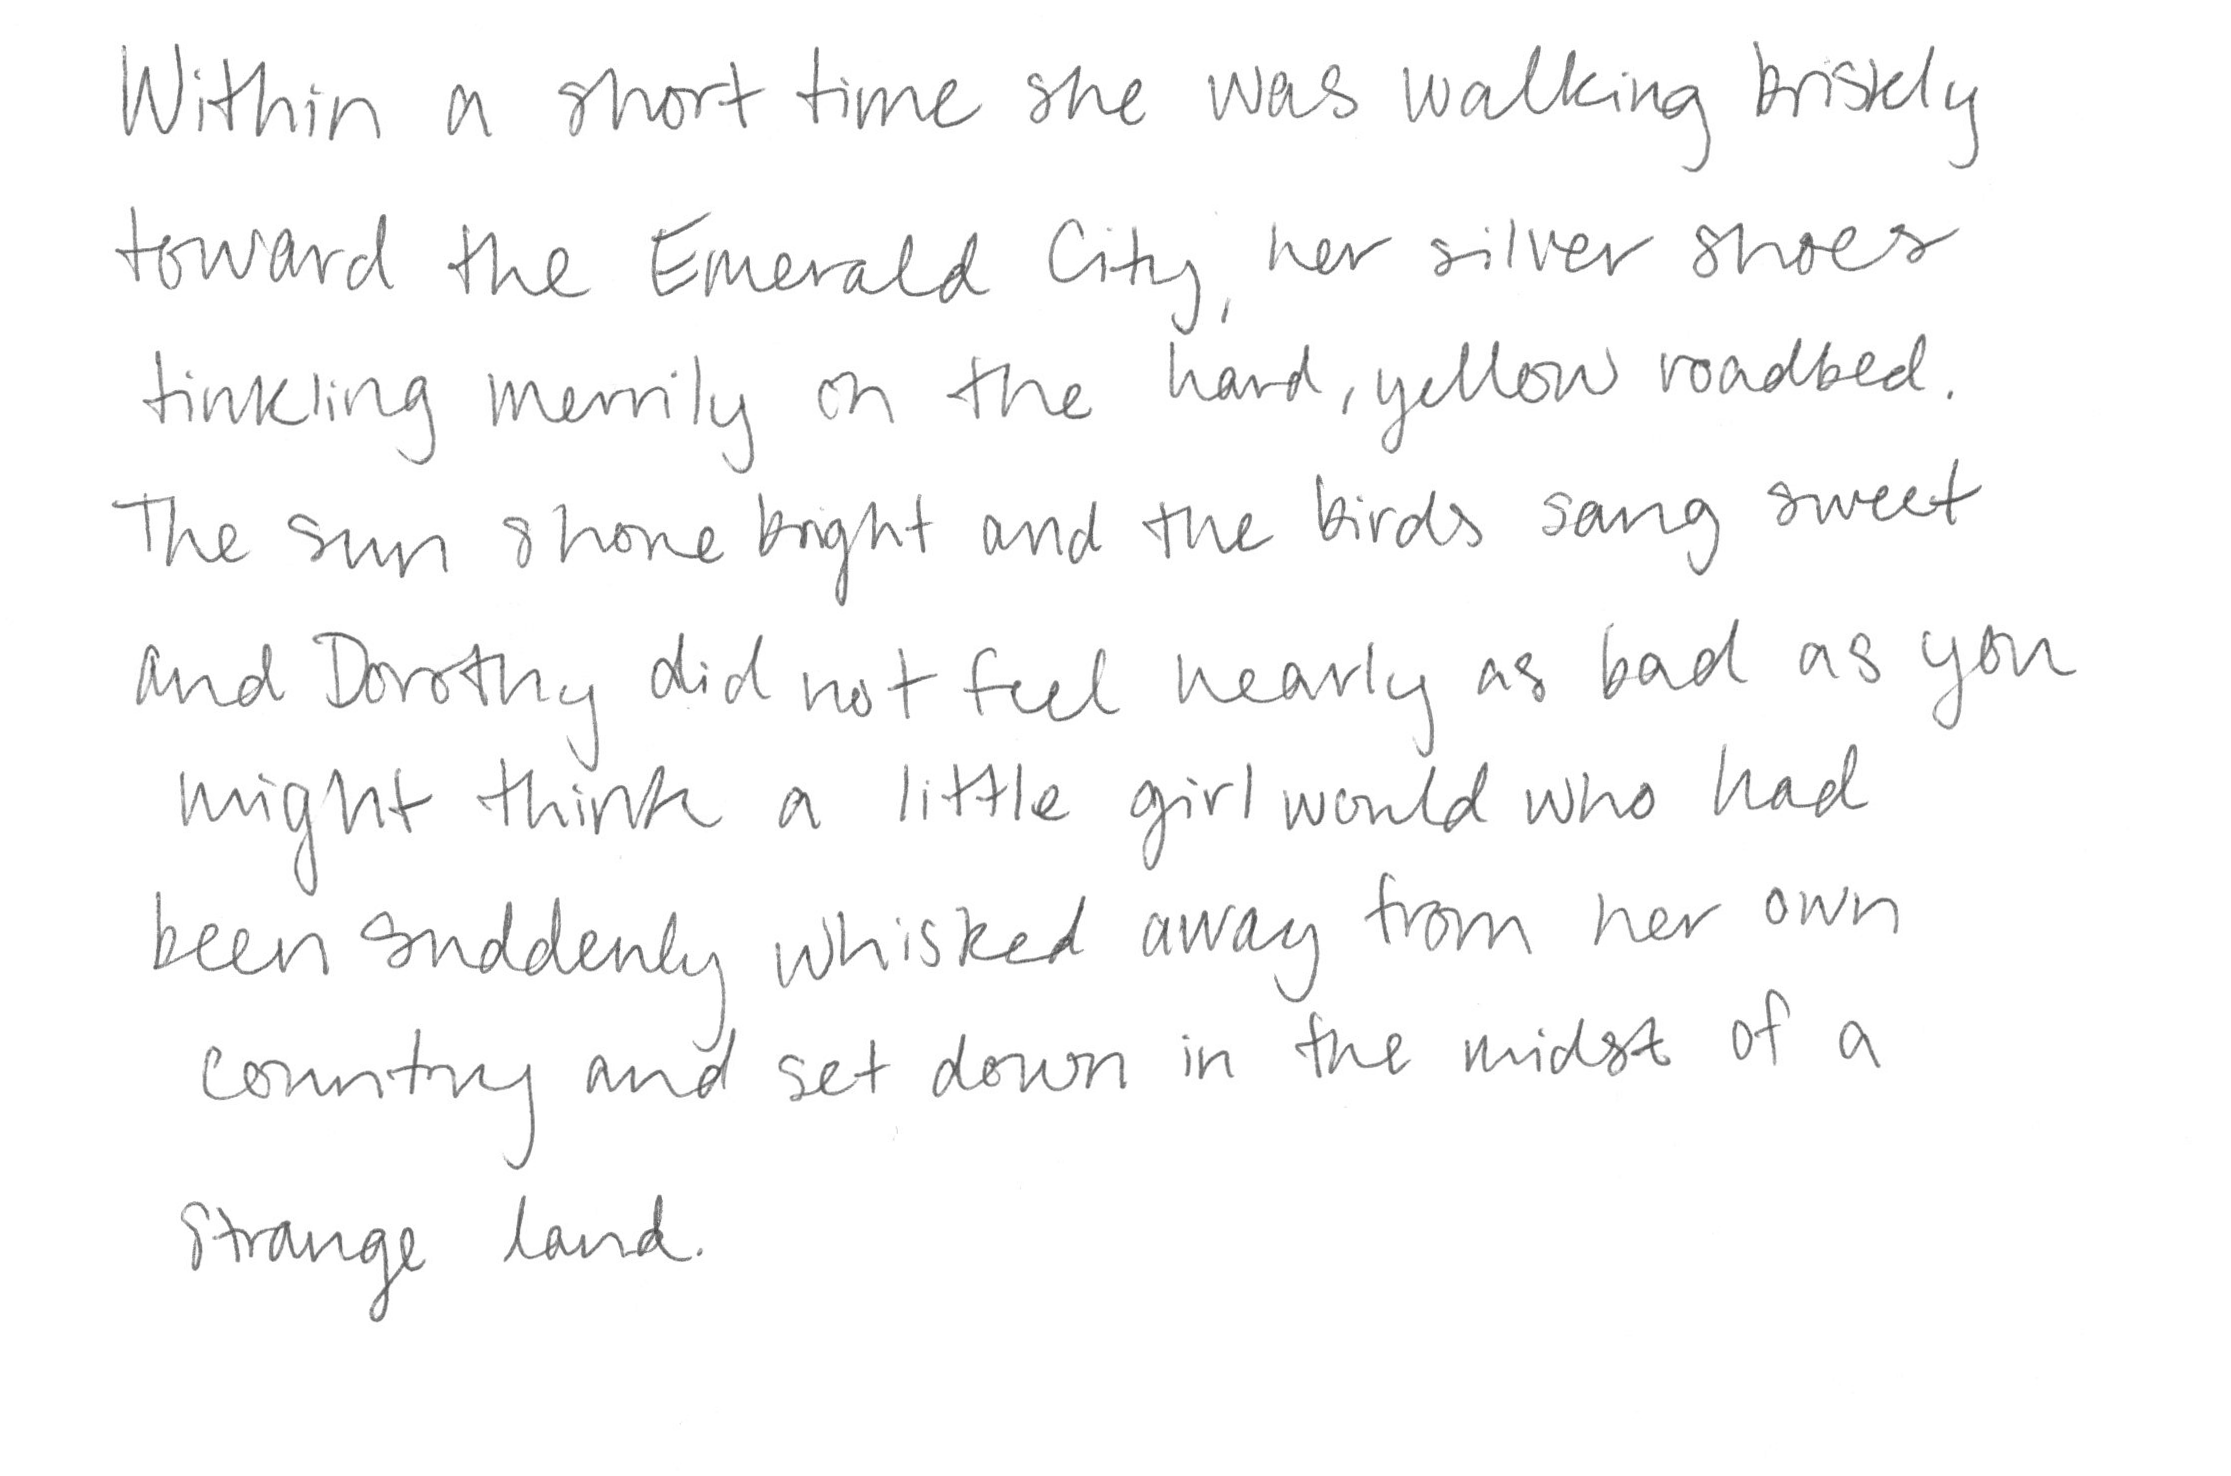 Within a short time she was walking briskly
toward the Emerald City, her silver shoes
tinkling merrily on the hard, yellow roadbed.
The sun shone bright and the birds sang sweet
and Dorothy did not feel nearly as bad as you
might think a little girl would who had
been suddenly whisked away from her own
country and set down in the midst of a
strange land.